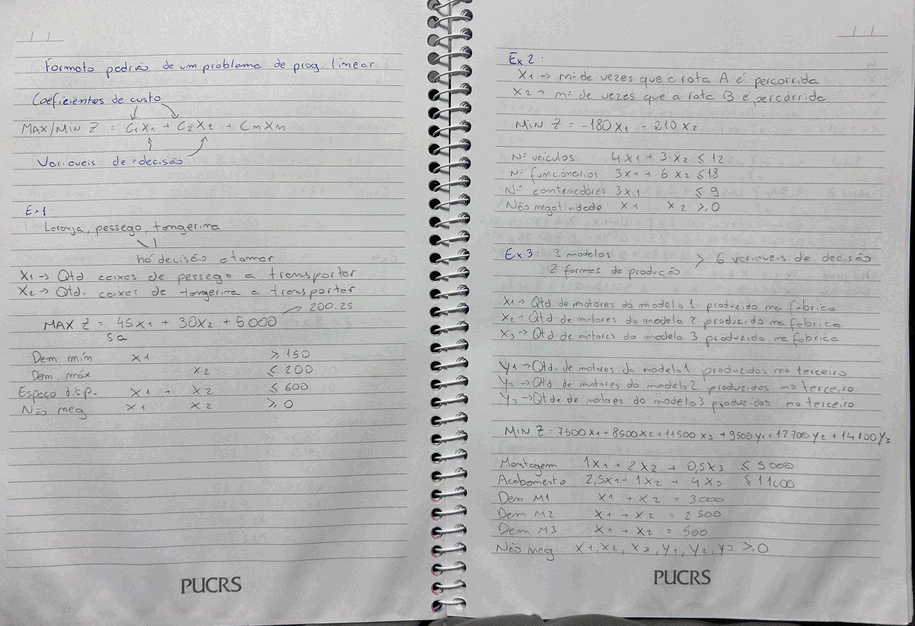 Formato padrão de um problema de prog. linear
Coeficientes de custo
MAX/MIN Z = C1X1 + C2X2 + CnXn
Variáveis de decisão
Ex1
Laranja, pessego, tangerina
há decisão a tomar
X1 → Qtd caixas de pessego a transportar
X2 → Qtd. caixas de tangerina a transportar
200.25
MAX Z = 45X1 + 30X2 + 5000
Sa
Dem min X1 ≥ 150
Dem. máx X2 ≤ 200
Espaço disp. X1 + X2 ≤ 600
Não neg X1 X2 ≥ 0
PUCRS
Ex 2:
X1 → nº de vezes que a rota A é percorrida
X2 → nº de vezes que a rota B é percorrida
MIN Z = -180X1 - 210X2
Nº veículos 4X1 + 3X2 ≤ 12
Nº funcionários 3X1 + 6X2 ≤ 18
Nº conteneidores 3X1 ≤ 9
Não negatividade X1 X2 ≥ 0
Ex3: 3 modelos > 6 variáveis de decisão
2 formas de produção
X1 → Qtd de motores do modelo 1 produzido na fabrica
X2 → Qtd de motores do modelo 2 produzido na fabrica
X3 → Qtd de motores do modelo 3 produzido na fabrica
Y1 → Qtd. de motores do modelo 1 produzidos no terceiro
Y2 → Qtd de motores do modelo 2 produzidos no terceiro
Y3 → Qtde de motores do modelo 3 produzidos no terceiro
MIN Z = 7500X1 + 8500X2 + 11500X3 + 9500Y1 + 12700Y2 + 14100Y3
Montagem 1X1 + 2X2 + 0,5X3 ≤ 5000
Acabamento 2,5X1 + 1X2 + 4X3 ≤ 11000
Dem M1 X1 + X2 = 3000
Dem M2 X1 + X2 = 2500
Dem M3 X1 + X2 = 500
Não neg X1, X2, X3, Y1, Y2, Y3 ≥ 0
PUCRS